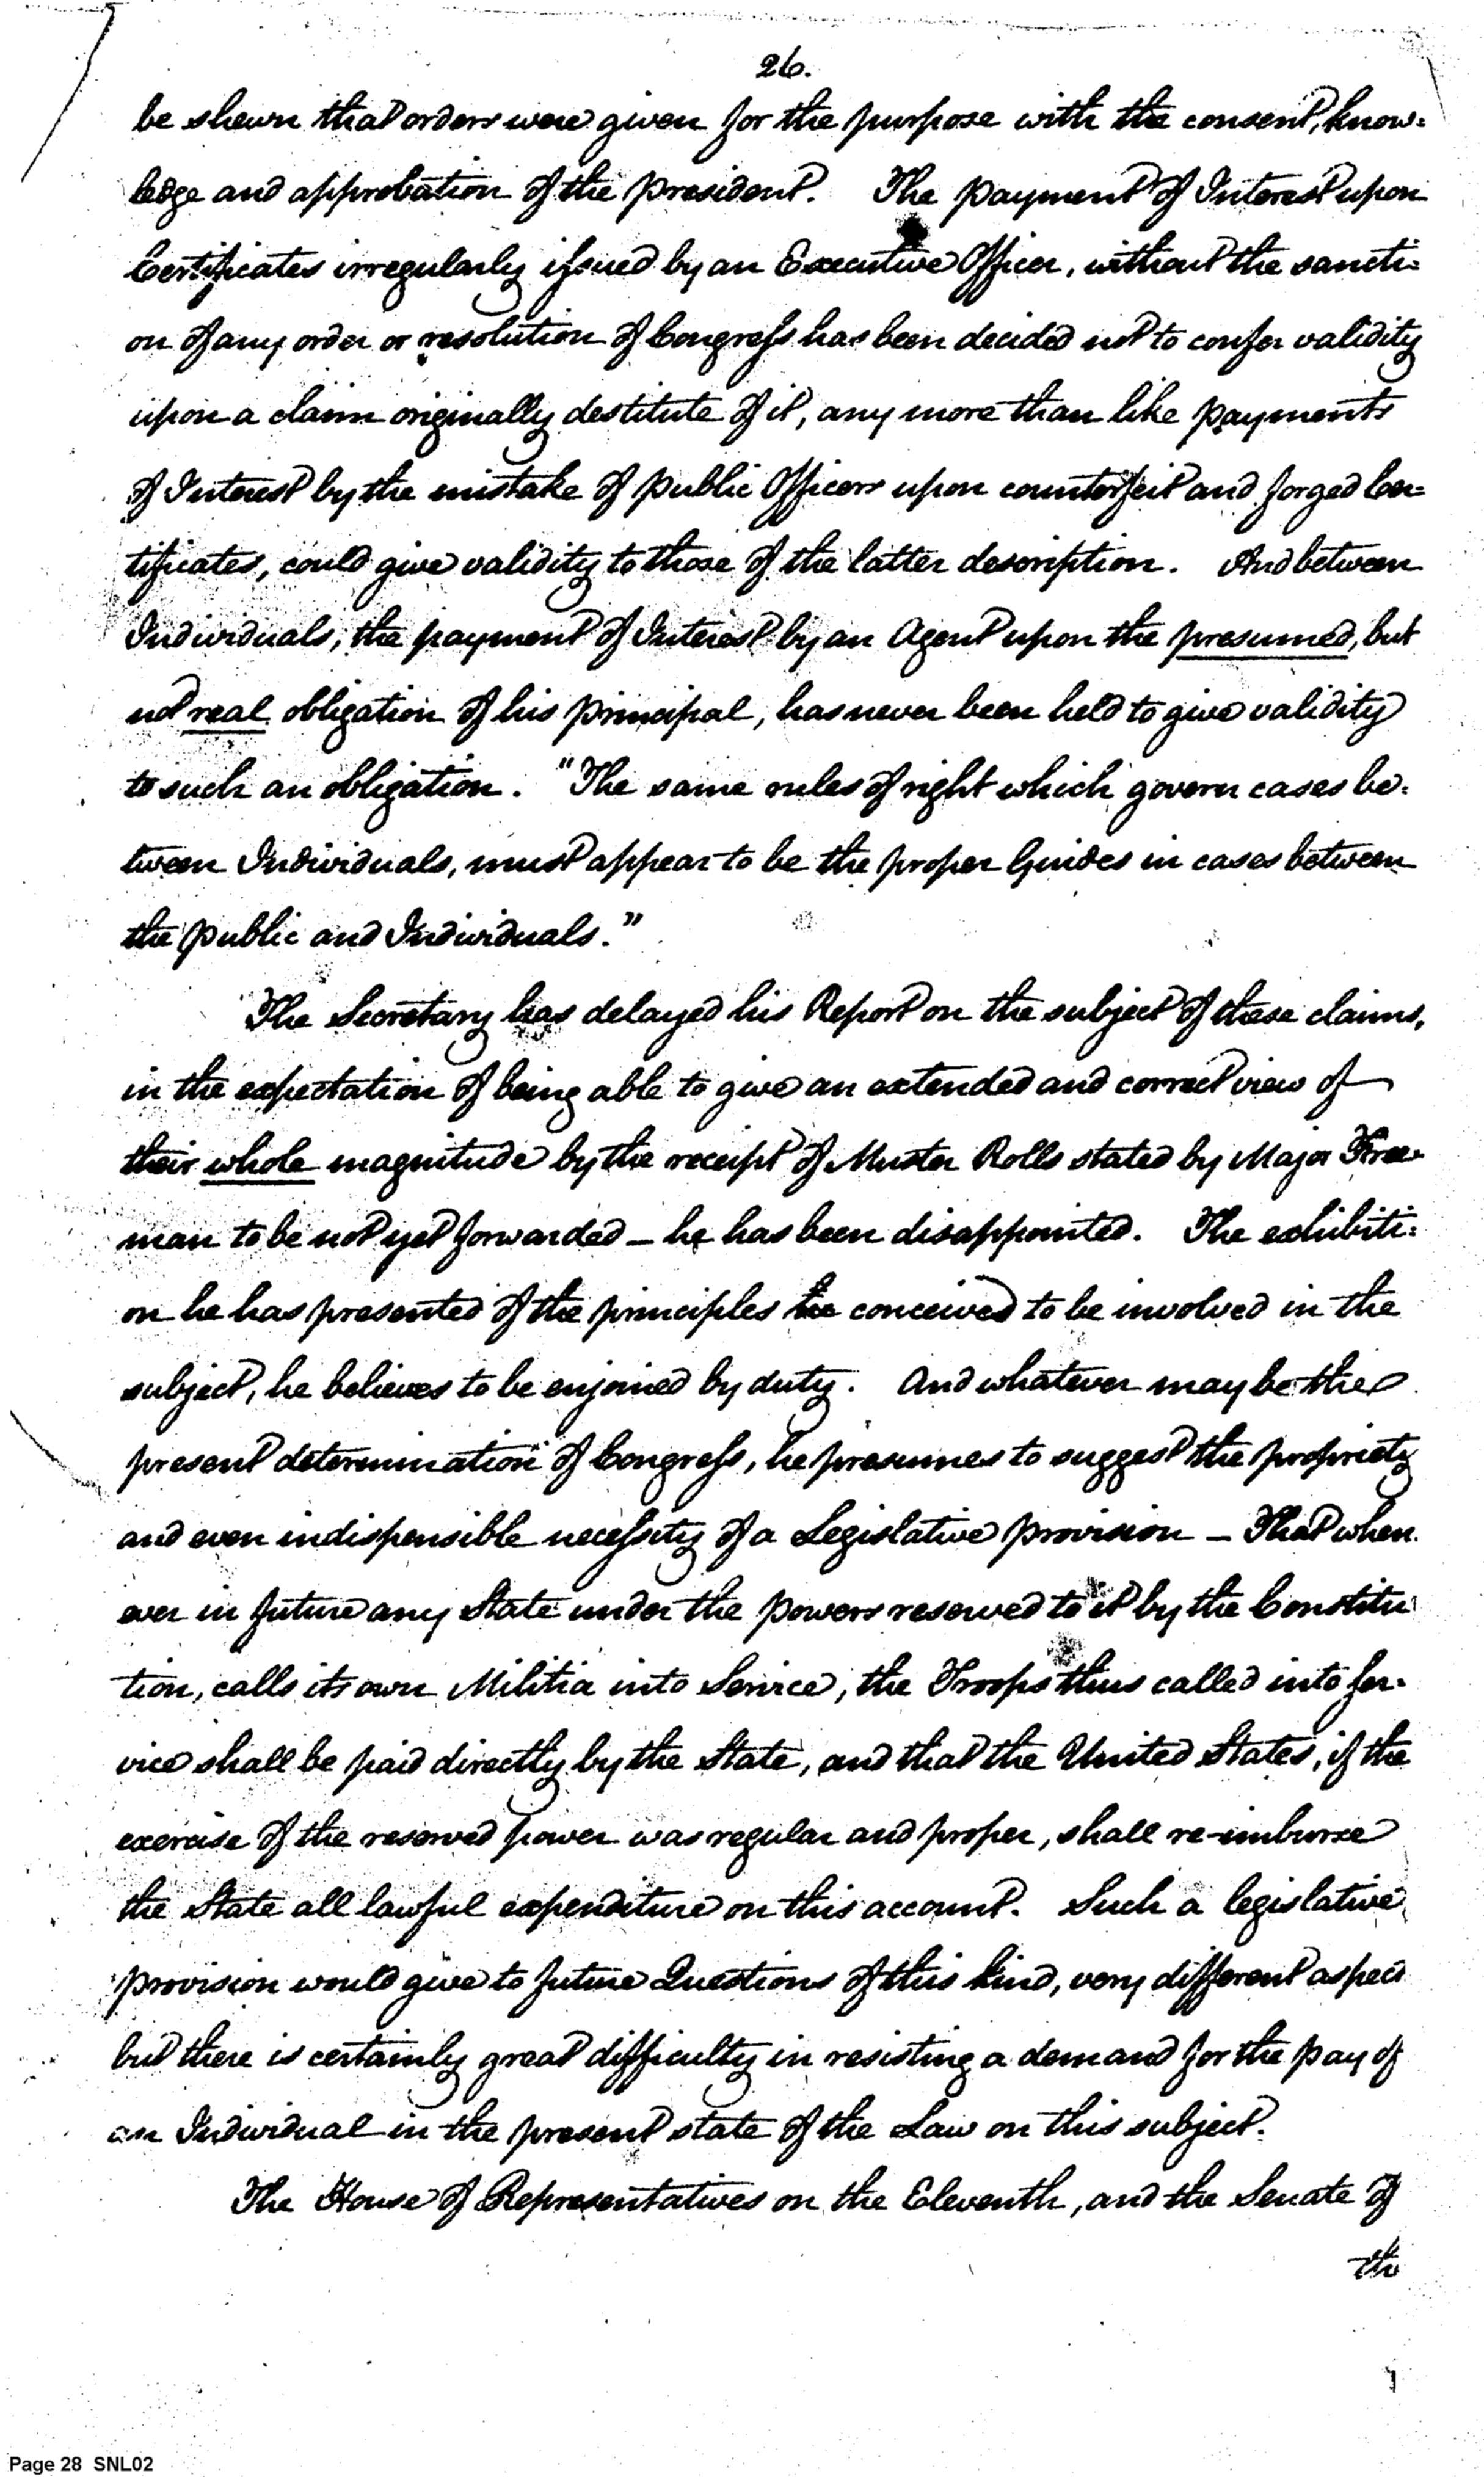 26.
be shewn that orders were given for the purpose with the consent, know=
ledge and approbation of the President. The payment of Interest upon
Certificates irregularly issued by an Executive Officer, without the sancti=
on of any order or resolution of Congress has been decided not to confer validity
upon a claim originally destitute of it, any more than like payments
of Interest by the mistake of public Officers upon counterfeit and forged Cer=
tificates, could give validity to those of the latter description. And between
Individuals, the payment of Interest by an Agent upon the presumed, but
not real obligation of his principal, has never been held to give validity
to such an obligation. "The same rules of right which govern cases be=
tween Individuals, must appear to be the proper Guides in cases between
the public and Individuals."
The Secretary has delayed his Report on the subject of these claims,
in the expectation of being able to give an extended and correct view of
their whole magnitude by the receipt of Muster Rolls stated by Major Free=
man to be not yet forwarded – he has been disappointed. The exhibiti=
on he has presented of the principles he conceived to be involved in the
subject, he believes to be enjoined by duty. And whatever may be the
present determination of Congress, he presumes to suggest the propriety
and even indispensible necessity of a Legislative provision – That when
ever in future any State under the powers reserved to it by the Constitu
tion, calls its own Militia into Service, the Troops thus called into ser=
vice shall be paid directly by the State, and that the United States, if the
exercise of the reserved power was regular and proper, shall re-imburse
the State all lawful expenditure on this account. Such a legislative
provision would give to future Questions of this kind, very different aspect
but there is certainly great difficulty in resisting a demand for the pay of
an Individual in the present state of the Law on this subject.
The House of Representatives on the Eleventh, and the Senate of
the
Page 28 SNL02